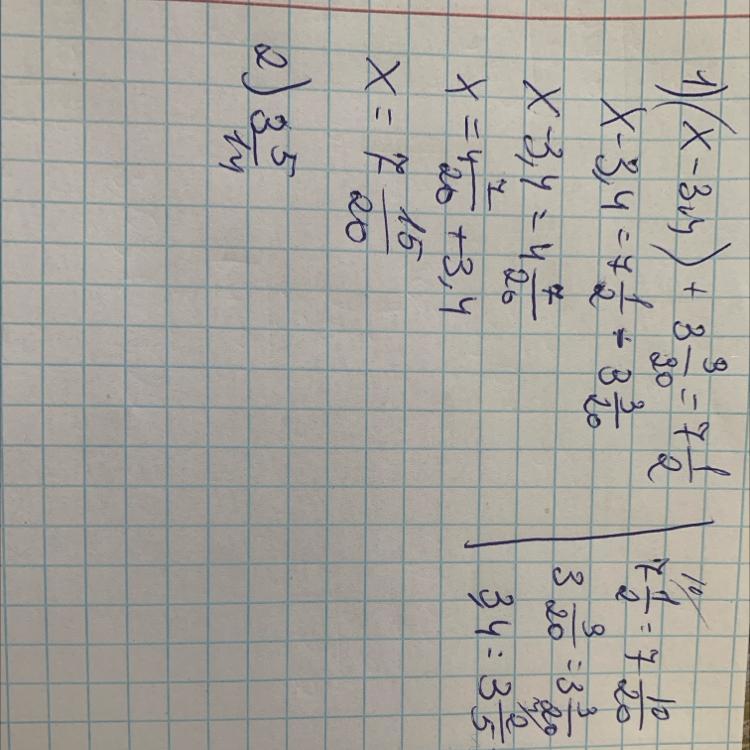 1) (x - 3,4) + 3 3/20 = 7 1/2
x - 3,4 = 7 1/2 - 3 3/20
x - 3,4 = 4 7/20
x = 4 7/20 + 3,4
x = 7 15/20
2) 3 5/14
7 1/2 = 7 10/20
3 3/20 = 3 3/20
3,4 = 3 2/5